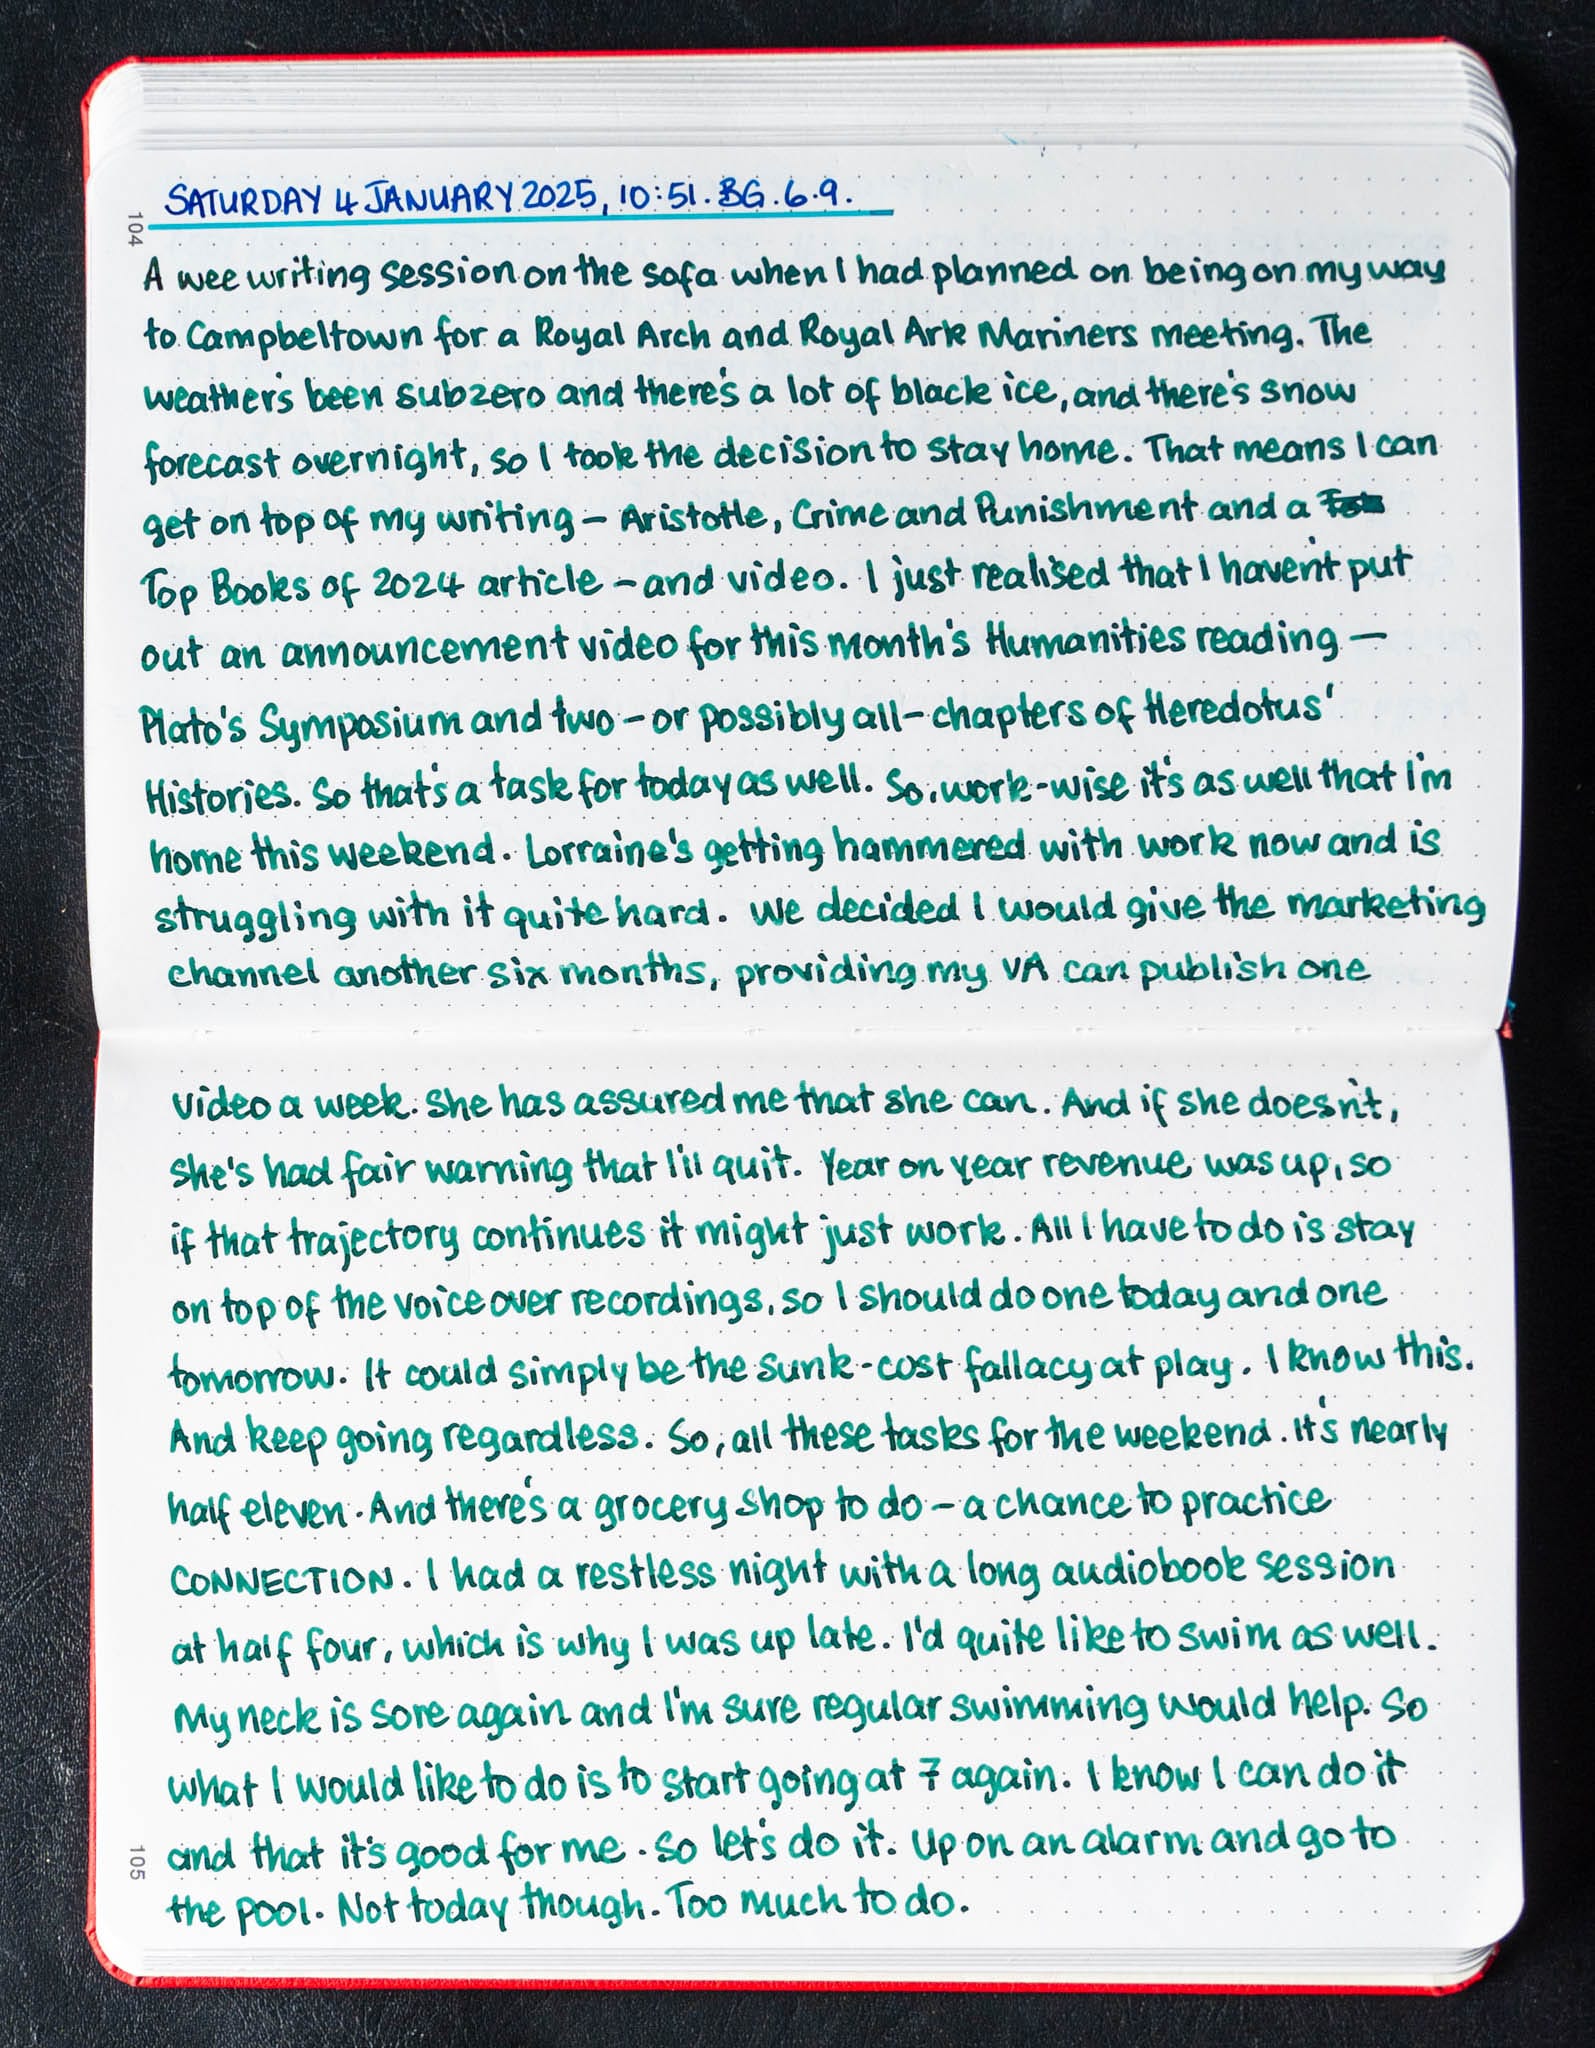 SATURDAY 4 JANUARY 2025, 10:51. BG. 6.9.
104
A wee writing session on the sofa when I had planned on being on my way
to Campbeltown for a Royal Arch and Royal Ark Mariners meeting. The
weather's been subzero and there's a lot of black ice, and there's snow
forecast overnight, so I took the decision to stay home. That means I can
get on top of my writing – Aristotle, Crime and Punishment and a
Top Books of 2024 article – and video. I just realised that I haven't put
out an announcement video for this month's Humanities reading –
Plato's Symposium and two – or possibly all – chapters of Heredotus'
Histories. So that's a task for today as well. So, work-wise it's as well that I'm
home this weekend. Lorraine's getting hammered with work now and is
struggling with it quite hard. We decided I would give the marketing
channel another six months, providing my VA can publish one
video a week. She has assured me that she can. And if she doesn't,
she's had fair warning that I'll quit. Year on year revenue was up, so
if that trajectory continues it might just work. All I have to do is stay
on top of the voiceover recordings, so I should do one today and one
tomorrow. It could simply be the sunk-cost fallacy at play. I know this.
And keep going regardless. So, all these tasks for the weekend. It's nearly
half eleven. And there's a grocery shop to do – a chance to practice
CONNECTION. I had a restless night with a long audiobook session
at half four, which is why I was up late. I'd quite like to swim as well.
My neck is sore again and I'm sure regular swimming would help. So
what I would like to do is to start going at 7 again. I know I can do it
and that it's good for me. So let's do it. Up on an alarm and go to
the pool. Not today though. Too much to do.
105